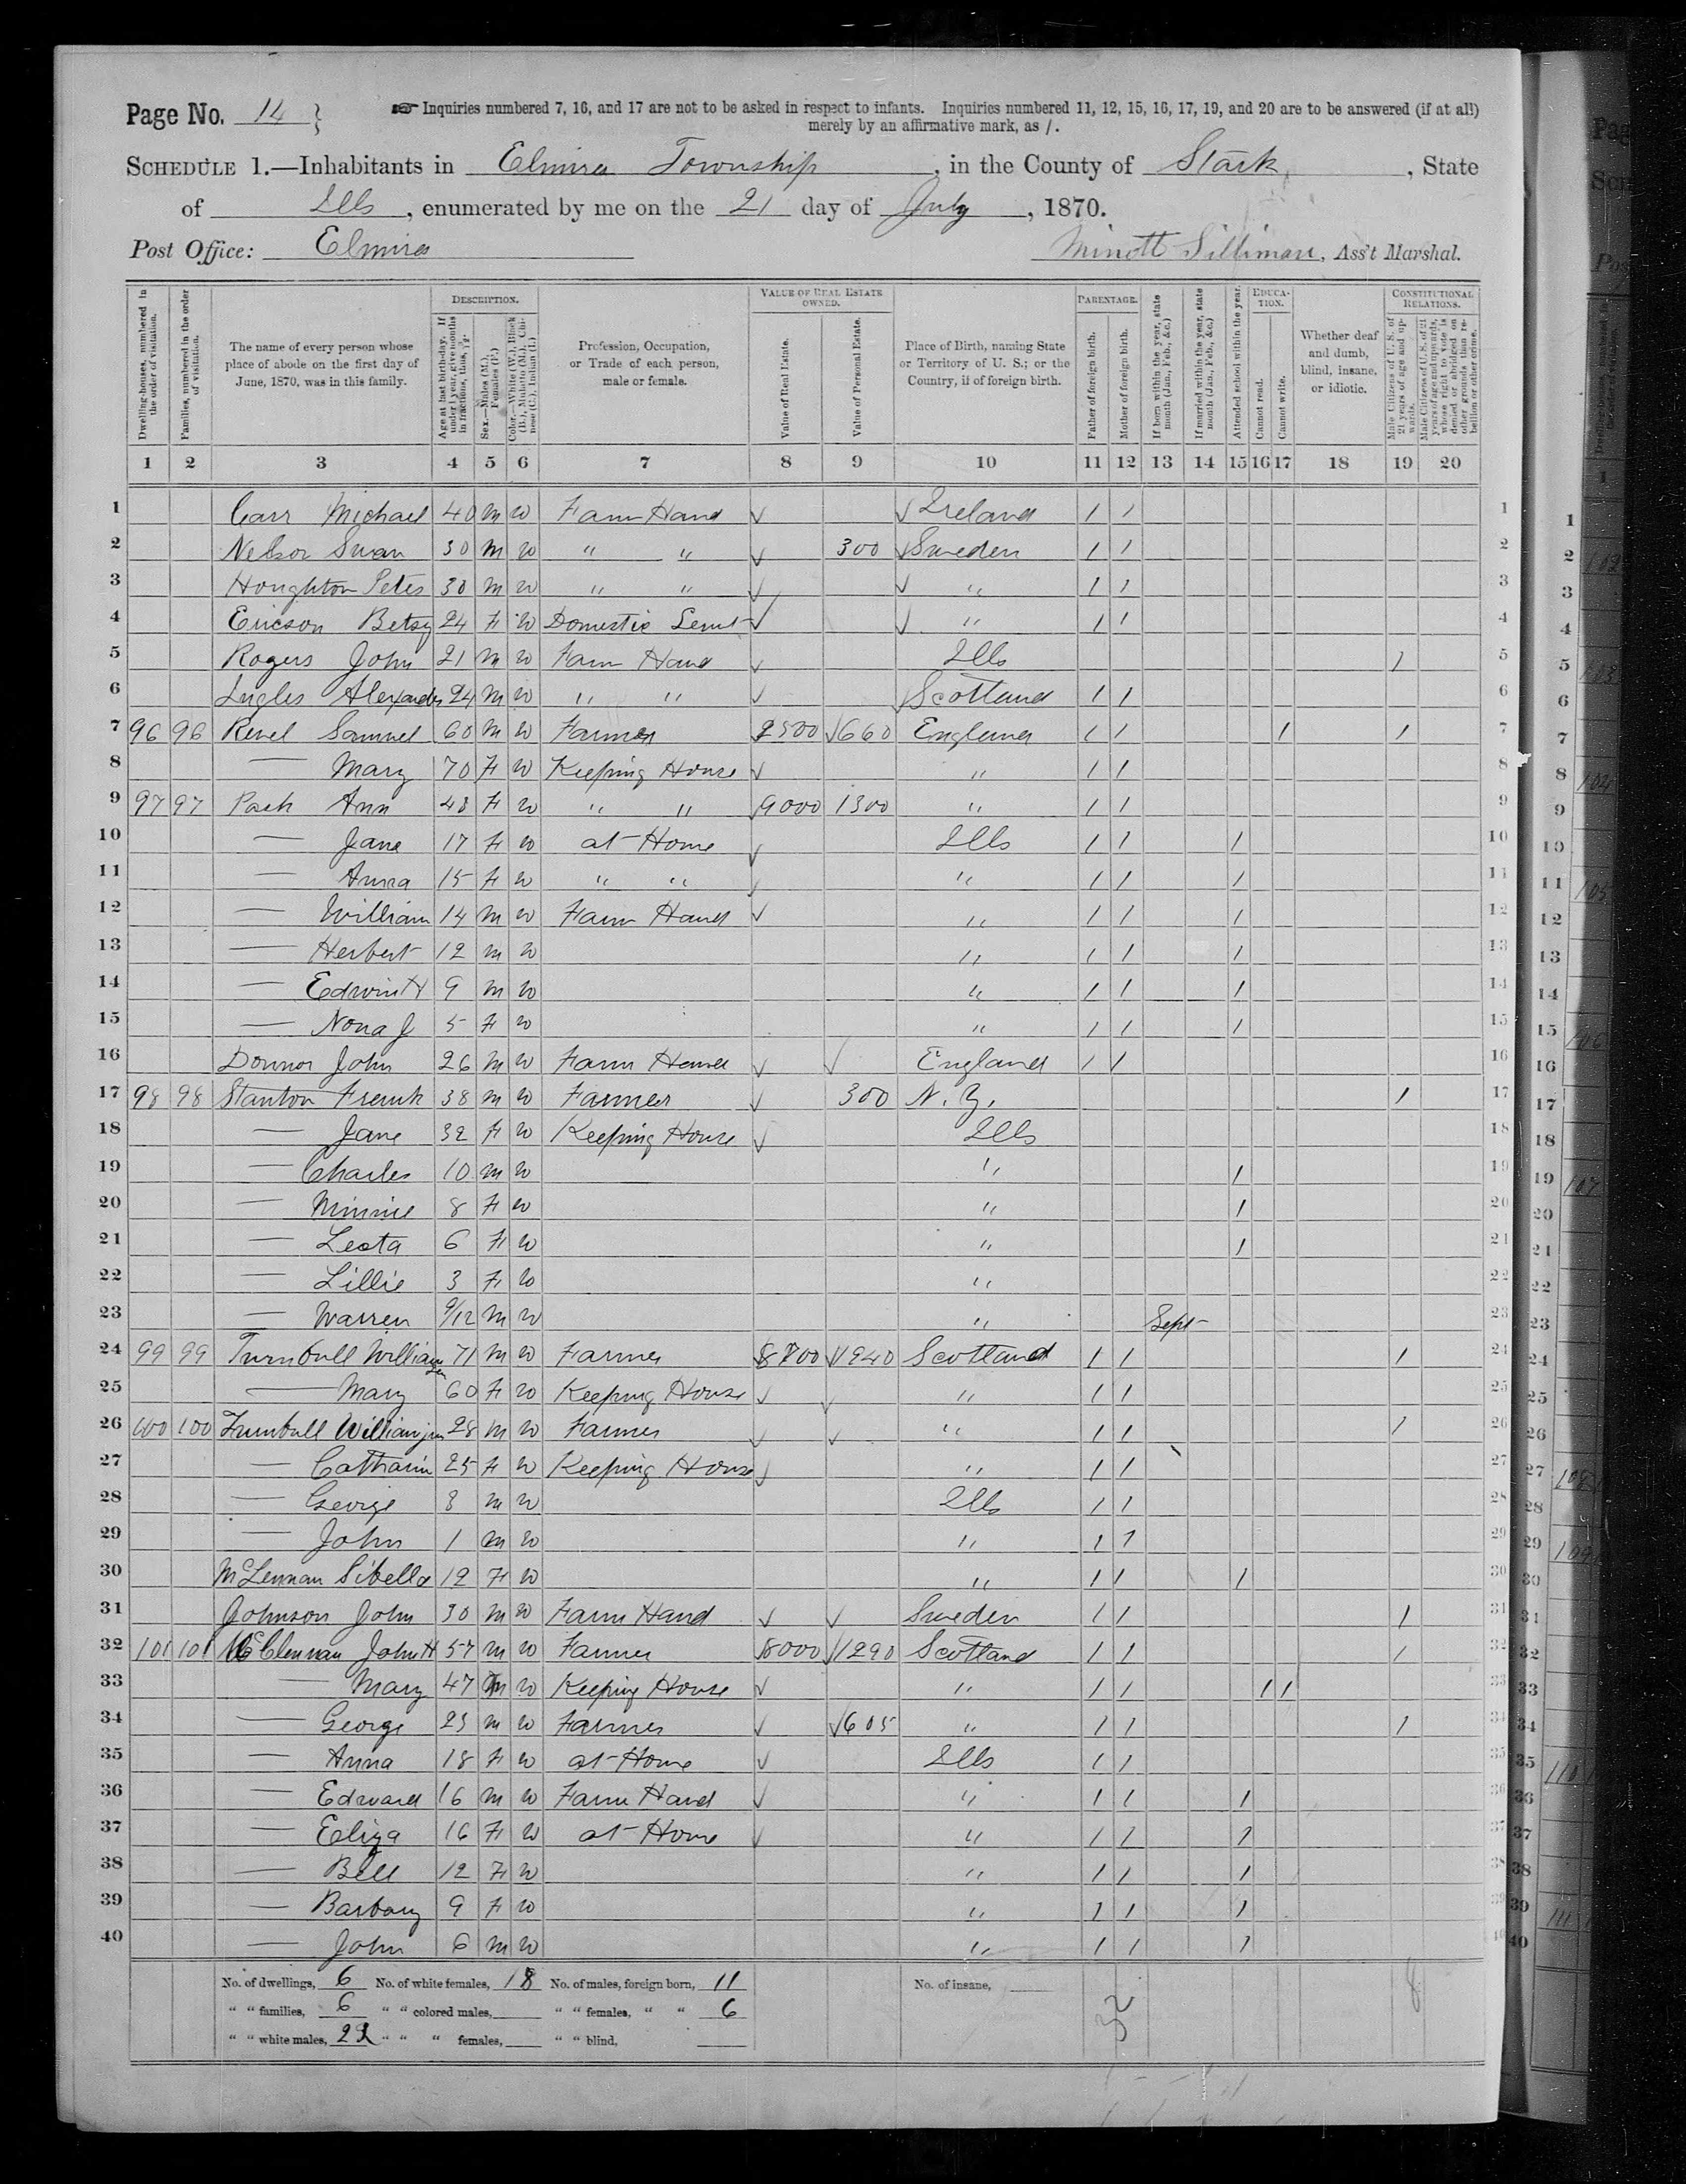 Page No. 14 } ☞ Inquiries numbered 7, 16, and 17 are not to be asked in respect to infants. Inquiries numbered 11, 12, 15, 16, 17, 19, and 20 are to be answered (if at all)
merely by an affirmative mark, as /.
SCHEDULE 1.—Inhabitants in Elmira Township, in the County of Stark, State
of Ills, enumerated by me on the 21 day of July, 1870.
Post Office: Elmira Minott Silliman, Ass't Marshal.
Dwelling-houses, numbered in the order of visitation.
Families, numbered in the order of visitation.
The name of every person whose place of abode on the first day of June, 1870, was in this family.
DESCRIPTION.
Age at last birth-day. If under 1 year, give months in fractions, thus, 3/12.
Sex.—Males (M.), Females (F.)
Color.—White (W.), Black (B.), Mulatto (M.), Chinese (C.), Indian (I.)
Profession, Occupation, or Trade of each person, male or female.
VALUE OF REAL ESTATE OWNED.
Value of Real Estate.
Value of Personal Estate.
Place of Birth, naming State or Territory of U. S.; or the Country, if of foreign birth.
PARENTAGE.
Father of foreign birth.
Mother of foreign birth.
If born within the year, state month (Jan., Feb., &c.)
If married within the year, state month (Jan., Feb., &c.)
Attended school within the year.
EDUCATION.
Cannot read.
Cannot write.
Whether deaf and dumb, blind, insane, or idiotic.
CONSTITUTIONAL RELATIONS.
Male Citizens of U. S. of 21 years of age and upwards.
Male Citizens of U. S. of 21 years of age and upwards, whose right to vote is denied or abridged on other grounds than rebellion or other crime.
1 2 3 4 5 6 7 8 9 10 11 12 13 14 15 16 17 18 19 20
1 Carr Michael 40 m w Farm Hand √ √ Ireland / / 1
2 Nelson Swan 30 m w " " √ 300 √ Sweden / / 2
3 Houghton Peter 30 m w " " √ √ " / / 3
4 Ericson Betsy 24 F w Domestic Servt √ √ " / / 4
5 Rogers John 21 m w Farm Hand √ Ills / 5
6 Ingles Alexander 24 m w " " √ √ Scotland / / 6
7 96 96 Revel Samuel 60 m w Farmer 2500 √ 660 England / / / / 7
8 — Mary 70 F w Keeping House √ " / / 8
9 97 97 Pack Ann 48 F w " " 9000 1300 " / / 9
10 — Jane 17 F w at Home √ Ills / / / 10
11 — Anna 15 F w " " √ " / / / 11
12 — William 14 m w Farm Hand √ " / / / 12
13 — Herbert 12 m w " / / / 13
14 — Edwin H 9 m w " / / / 14
15 — Nona J 5 F w " / / / 15
16 Donnor John 26 m w Farm Hand √ √ England / / 16
17 98 98 Stanton Frank 38 m w Farmer √ 300 N. Y. / 17
18 — Jane 32 F w Keeping House √ Ills 18
19 — Charles 10 m w " / 19
20 — Minnie 8 F w " / 20
21 — Leota 6 F w " / 21
22 — Lillie 3 F w " 22
23 — Warren 9/12 m w " Sept 23
24 99 99 Turnbull William Sen 71 m w Farmer 8700 √ 940 Scotland / / / 24
25 — Mary 60 F w Keeping House √ √ " / / 25
26 100 100 Turnbull William jun 28 m w Farmer √ √ " / / / 26
27 — Catharin 25 F w Keeping House √ " / / 27
28 — George 3 m w Ills / / 28
29 — John 1 m w " / / 29
30 McLennan Sibella 12 F w " / / / 30
31 Johnson John 30 m w Farm Hand √ √ Sweden / / / 31
32 101 101 McClennan John H 57 m w Farmer 8000 √ 1290 Scotland / / / 32
33 — Mary 47 w Keeping House √ " / / / / 33
34 — George 23 m w Farmer √ √ 605 " / / / 34
35 — Anna 18 F w at Home √ Ills / / 35
36 — Edward 16 m w Farm Hand √ " / / / 36
37 — Eliza 16 F w at Home √ " / / / 37
38 — Bell 12 F w " / / / 38
39 — Barbary 9 F w " / / / 39
40 — John 6 m w " / / / 40
No. of dwellings, 6 No. of white females, 18 No. of males, foreign born, 11 No. of insane,
" " families, 6 " " colored males, " " females, " " 6 32 8
" " white males, 22 " " " females, " " blind,